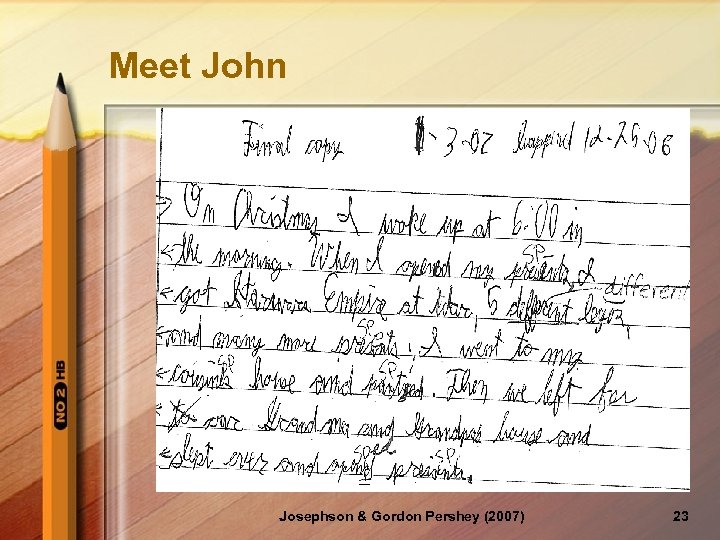 Meet John
Final copy 1-3-02 happind 12-25-06
On Christmas I woke up at 6:00 in
SP
the morning. When I opened my presents, I
different
got Starwars Empire at 5 different legos,
SP
and many more presents. I went to my
SP SP
cousins house and partyed. Then we left for
to our Grandma and Grandpas house and
SP ed SP
slept over and opend presents.
NO 2 HB
Josephson & Gordon Pershey (2007) 23